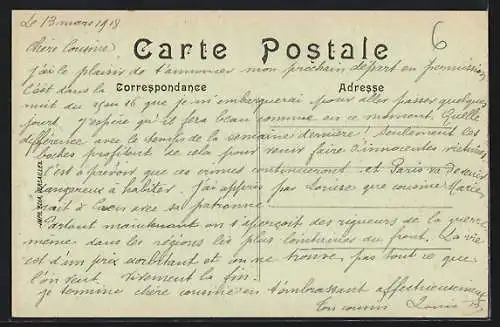 Le 13 mars 1918
6
Chère Cousine
Carte Postale
J'ai le plaisir de t'annoncer mon prochain départ en permission
C'est dans la Correspondance Adresse
nuit du 15 au 16 que je m'embarquerai pour aller passer quelques
jours, j'espère qu'il fera beau comme en ce moment. Quelle
différence avec le temps de la semaine dernière! Seulement ces
boches profitent de cela pour venir faire d'innocentes victimes
C'est à prévoir que ces crimes continueront et Paris va devenir
dangereux à habiter. J'ai appris par Louise que cousine Marie
était à Caen avec sa patronne.
Partout maintenant on s'aperçoit des rigueurs de la guerre
même dans les régions les plus lointaines du front. La vie
est d'un prix exorbitant et on ne trouve pas tout ce que
l'on veut. Vivement la fin.
Je termine chère cousine en t'embrassant affectueusement
Ton cousin Louis